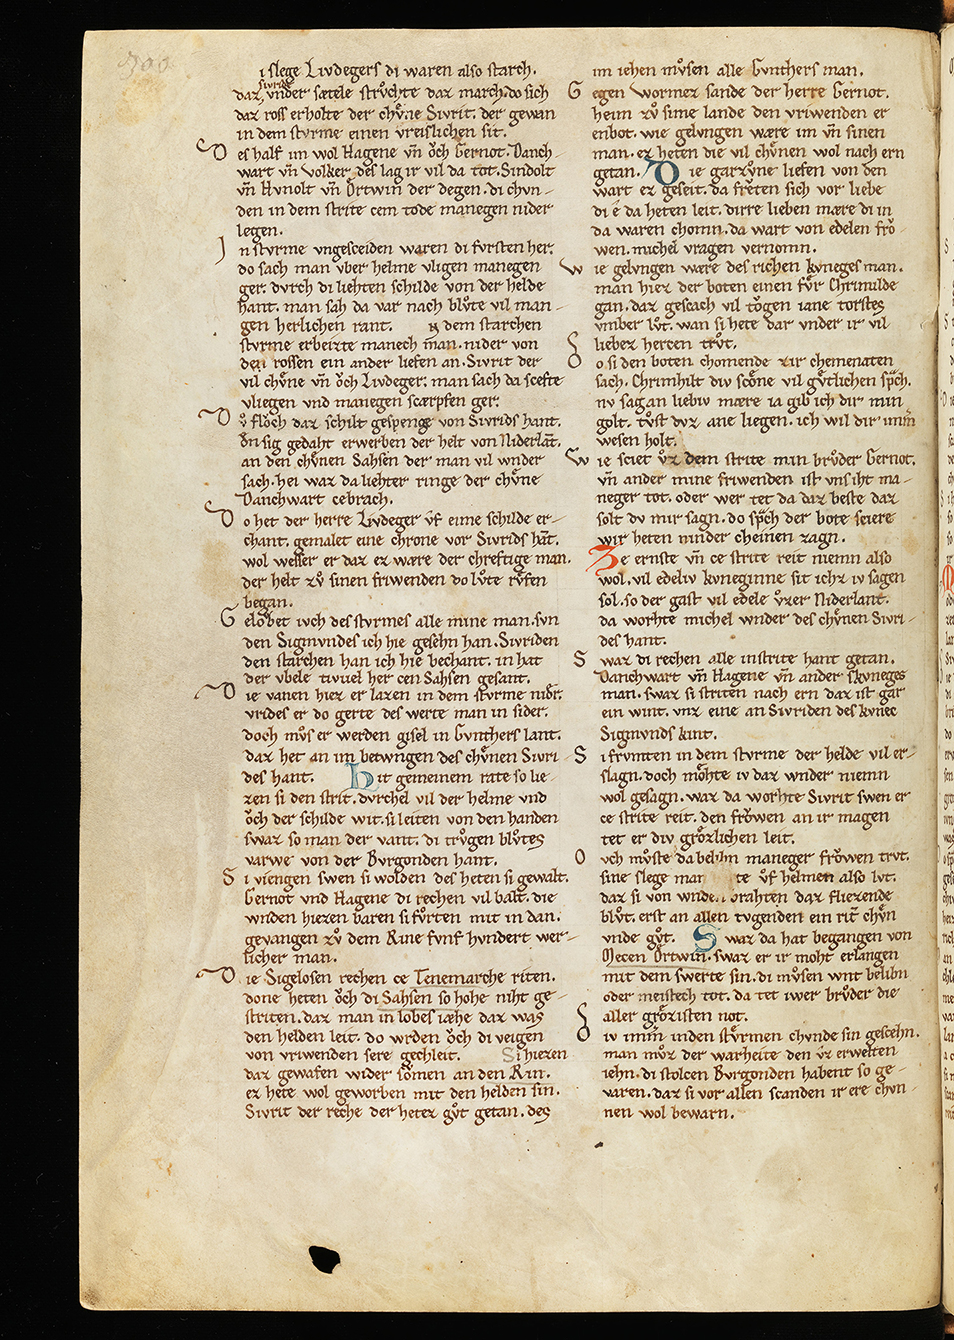 300
i slege Livdegers di waren also starch.
Sivride
daz under sætele struͦchte daz march. do sich
daz ross erholte der chuͤne Sivrit. der gewan
in dem stvrme einen vreislichen sit.
Des half im wol Hagene vn̄ oͮch Gernot. Danch-
wart vn̄ Volker. des lag ir vil da tot. Sindolt
vn̄ Hvnolt vn̄ Ortwin der degen. di chvn-
den in dem strite cem tode manegen nider
legen.
In stvrme vngesceiden waren di fvrsten her.
do sach man vber helme vligen manegen
ger. dvrch di liehten schilde von der helde
hant. man sah da var nach blvͦte vil man-
gen herlichen rant. In dem starchen
stvrme erbeizte manech man. nider von
den rossen ein ander liefen an. Sivrit der
vil chvͤne vn̄ oͮch Livdeger. man sach da scefte
vliegen vnd manegen scærpfen ger.
Do floͮch daz schilt gespenge von Sivrids hant.
den sig gedaht erwerben der helt von Niderlāt.
an den chvͤnen Sahsen der man vil wnder
sach. hei waz da liehter ringe der chvͤne
Danchwart cebrach.
Do het der herre Livdeger vf eime schilde er-
chant. gemalet eine chrone vor Sivrids hāt.
wol wesser er daz ez wære der chreftige man.
der helt zv sinen friwenden do lvͦte rvͤfen
began.
Gelobet ivch des stvrmes alle mine man. svn
den Sigmvndes ich hie gesehn han. Sivriden
den starchen han ich hie bechant. in hat
der vbele tivuel her cen Sahsen gesant.
Die vanen hiez er lazen in dem stvrme nidr.
vrides er do gerte des werte man in sider.
doch mvͦs er werden gisel in Gvnthers lant.
daz het an im betwngen des chvͤnen Sivri-
des hant. Mit gemeinem rate so lie-
zen si den strit. dvrchel vil der helme vnd
oͮch der schilde wit. si leiten von den handen
swaz so man der vant. di trvͦgen blvͦtes
varwe von der Bvrgonden hant.
Si viengen swen si wolden des heten si gewalt.
Gernot vnd Hagene di rechen vil balt. die
wnden hiezen baren si fvͦrten mit in dan.
gevangen zvͦ dem Rine fvnf hvndert wer-
licher man.
Die Sigelosen rechen ce Tenemarche riten.
done heten oͮch di Sahsen so hohe niht ge-
striten. daz man in lobes iæhe daz was
den helden leit. do wrden oͮch di veigen
von vriwenden sere gechleit. Si hiezen
daz gewafen wider soͮmen an den Rin.
ez hete wol geworben mit den helden sin.
Sivrit der reche der hetez gvͦt getan. des
im iehen mvͦsen alle Gvnthers man.
Gegen Wormez sande der herre Gernot.
heim zvͦ sime lande den vriwenden er
enbot. wie gelvngen wære im vn̄ sinen
man. ez heten die vil chvͤnen wol nach ern
getan. Die garzvne liefen von den
wart ez geseit. da frevten sich vor liebe
di ê da heten leit. dirre lieben mære di in
da waren chomn. da wart von edelen froͮ-
wen. michel vragen vernomn.
Wie gelvngen wære des richen kvneges man.
man hiez der boten einen fvͤr Chrimilde
gan. daz gescach vil toͮgen iane torstes
vmber lvt. wan si hete dar vnder ir vil
liebez hercen trvt.
Do si den boten chomende zir chemenaten
sach. Chrimhilt div scoͤne vil gvͤtlichen sp̄ch.
nv sag an liebiv mære ia gib ich dir min
golt. tvͦst dvz ane liegen. ich wil dir imm̄
wesen holt.
Wie sciet vz dem strite min brvͦder Gernot.
vn̄ ander mine friwenden ist vns iht ma-
neger tot. oder wer tet da daz beste daz
solt dv mir sagn. do sp̄ch der bote sciere
wir heten ninder cheinen zagn.
Ze ernste vn̄ ce strite reit niemn also
wol. vil edeliv kvneginne sit ichz iv sagen
sol. so der gast vil edele vzer Niderlant.
da worhte michel wnder des chvͤnen Sivri-
des hant.
Swaz di rechen alle in strite hant getan.
Danchwart vn̄ Hagene vn̄ ander skvneges
man. swaz si striten nach ern daz ist gar
ein wint. vnz eine an Sivriden des kvnec
Sigmvnds kint.
Si frvmten in dem stvrme der helde vil er-
slagn. doch moͤhte iv daz wnder niemn
wol gesagn. waz da worhte Sivrit swen er
ce strite reit. den froͮwen an ir magen
tet er div groͤzlichen leit.
Ovch mvͦste da belibn maneger froͮwen trvt.
sine slege man te vf helmen also lvt.
daz si von wnden brahten daz fliezende
blvͦt. erst an allen tvgenden ein rit̄ chvͤn
vnde gvͦt. Swaz da hat begangen von
Mecen Ortwin. swaz er ir moht erlangen
mit dem swerte sin. di mvͦsen wnt belibn
oder meistech tot. da tet iwer brvͦder die
aller groͤzisten not.
Div imm̄ in den stvͤrmen chvnde sin gescehn.
man mvͦz der warheite den vz erwelten
iehn. di stolcen Bvrgonden habent so ge-
varen. daz si vor allen scanden ir ere chvn-
nen wol bewarn.